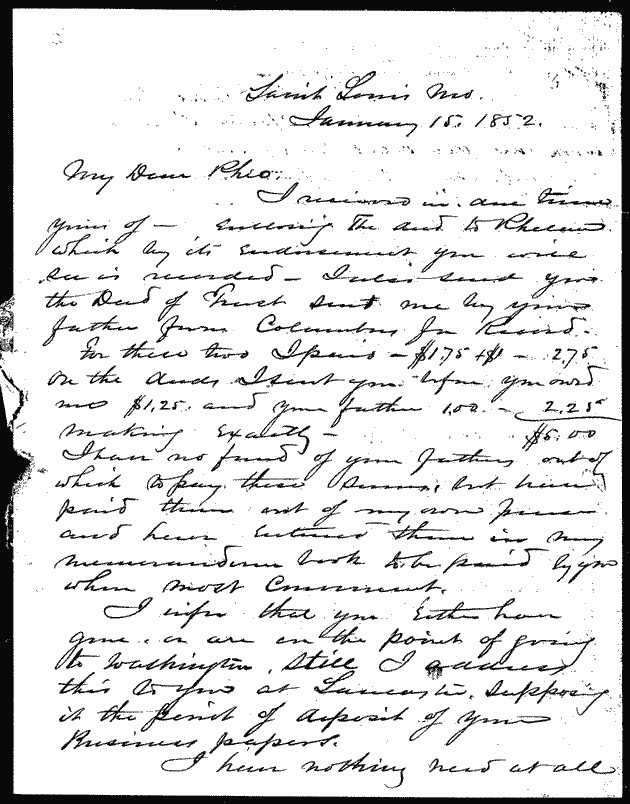 Saint Louis Mo.
January 15. 1852.
My Dear Phil.
I received in due time
yours of — enclosing the deed to Phelan
which by its endorsement you will
see is recorded — I also send you
the Deed of Trust sent me by your
father from Columbus for Record.
For these two I paid — $1.75 + $1 — 2.75
On the deeds I sent you before you owed
me $1.25. and your father 1.00 — 2.25
making exactly — $5.00
I have no fund of your fathers out of
which to pay these sums, but have
paid them out of my own purse
and have entered them in my
memorandum book to be paid by you
when most convenient.
I infer that you Either have
gone, or are on the point of going
to Washington, still I address
this to you at Lancaster, supposing
it the point of deposit of your
Business papers.
I have nothing new at all